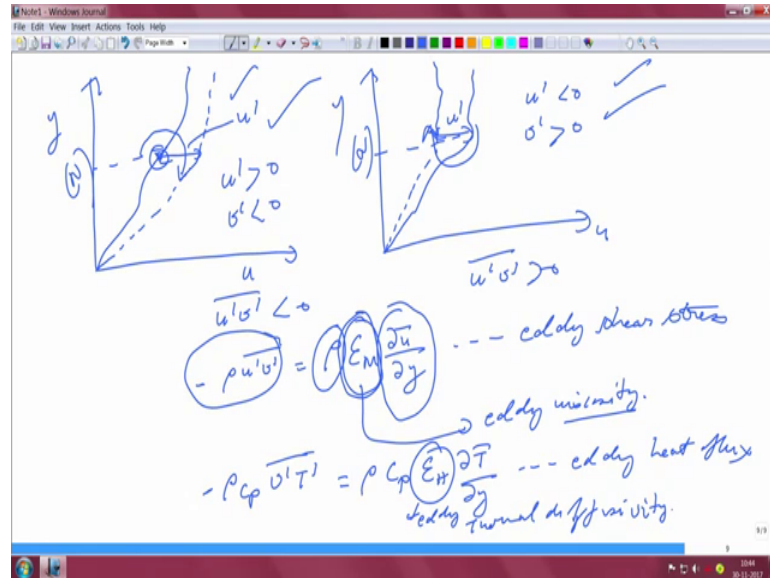 Note1 - Windows Journal
File Edit View Insert Actions Tools Help
Page Width
B I
y
u'
u' > 0
v' < 0
u
u'v' < 0
y
u'
u' < 0
v' > 0
u
u'v' > 0
- ρ u'v' = ρ ε_M ∂ū/∂y --- eddy shear stress
eddy viscosity.
- ρ c_p v'T' = ρ c_p ε_H ∂T̄/∂y --- eddy heat flux
eddy thermal diffusivity.
9/9
9
10:44
30-11-2017